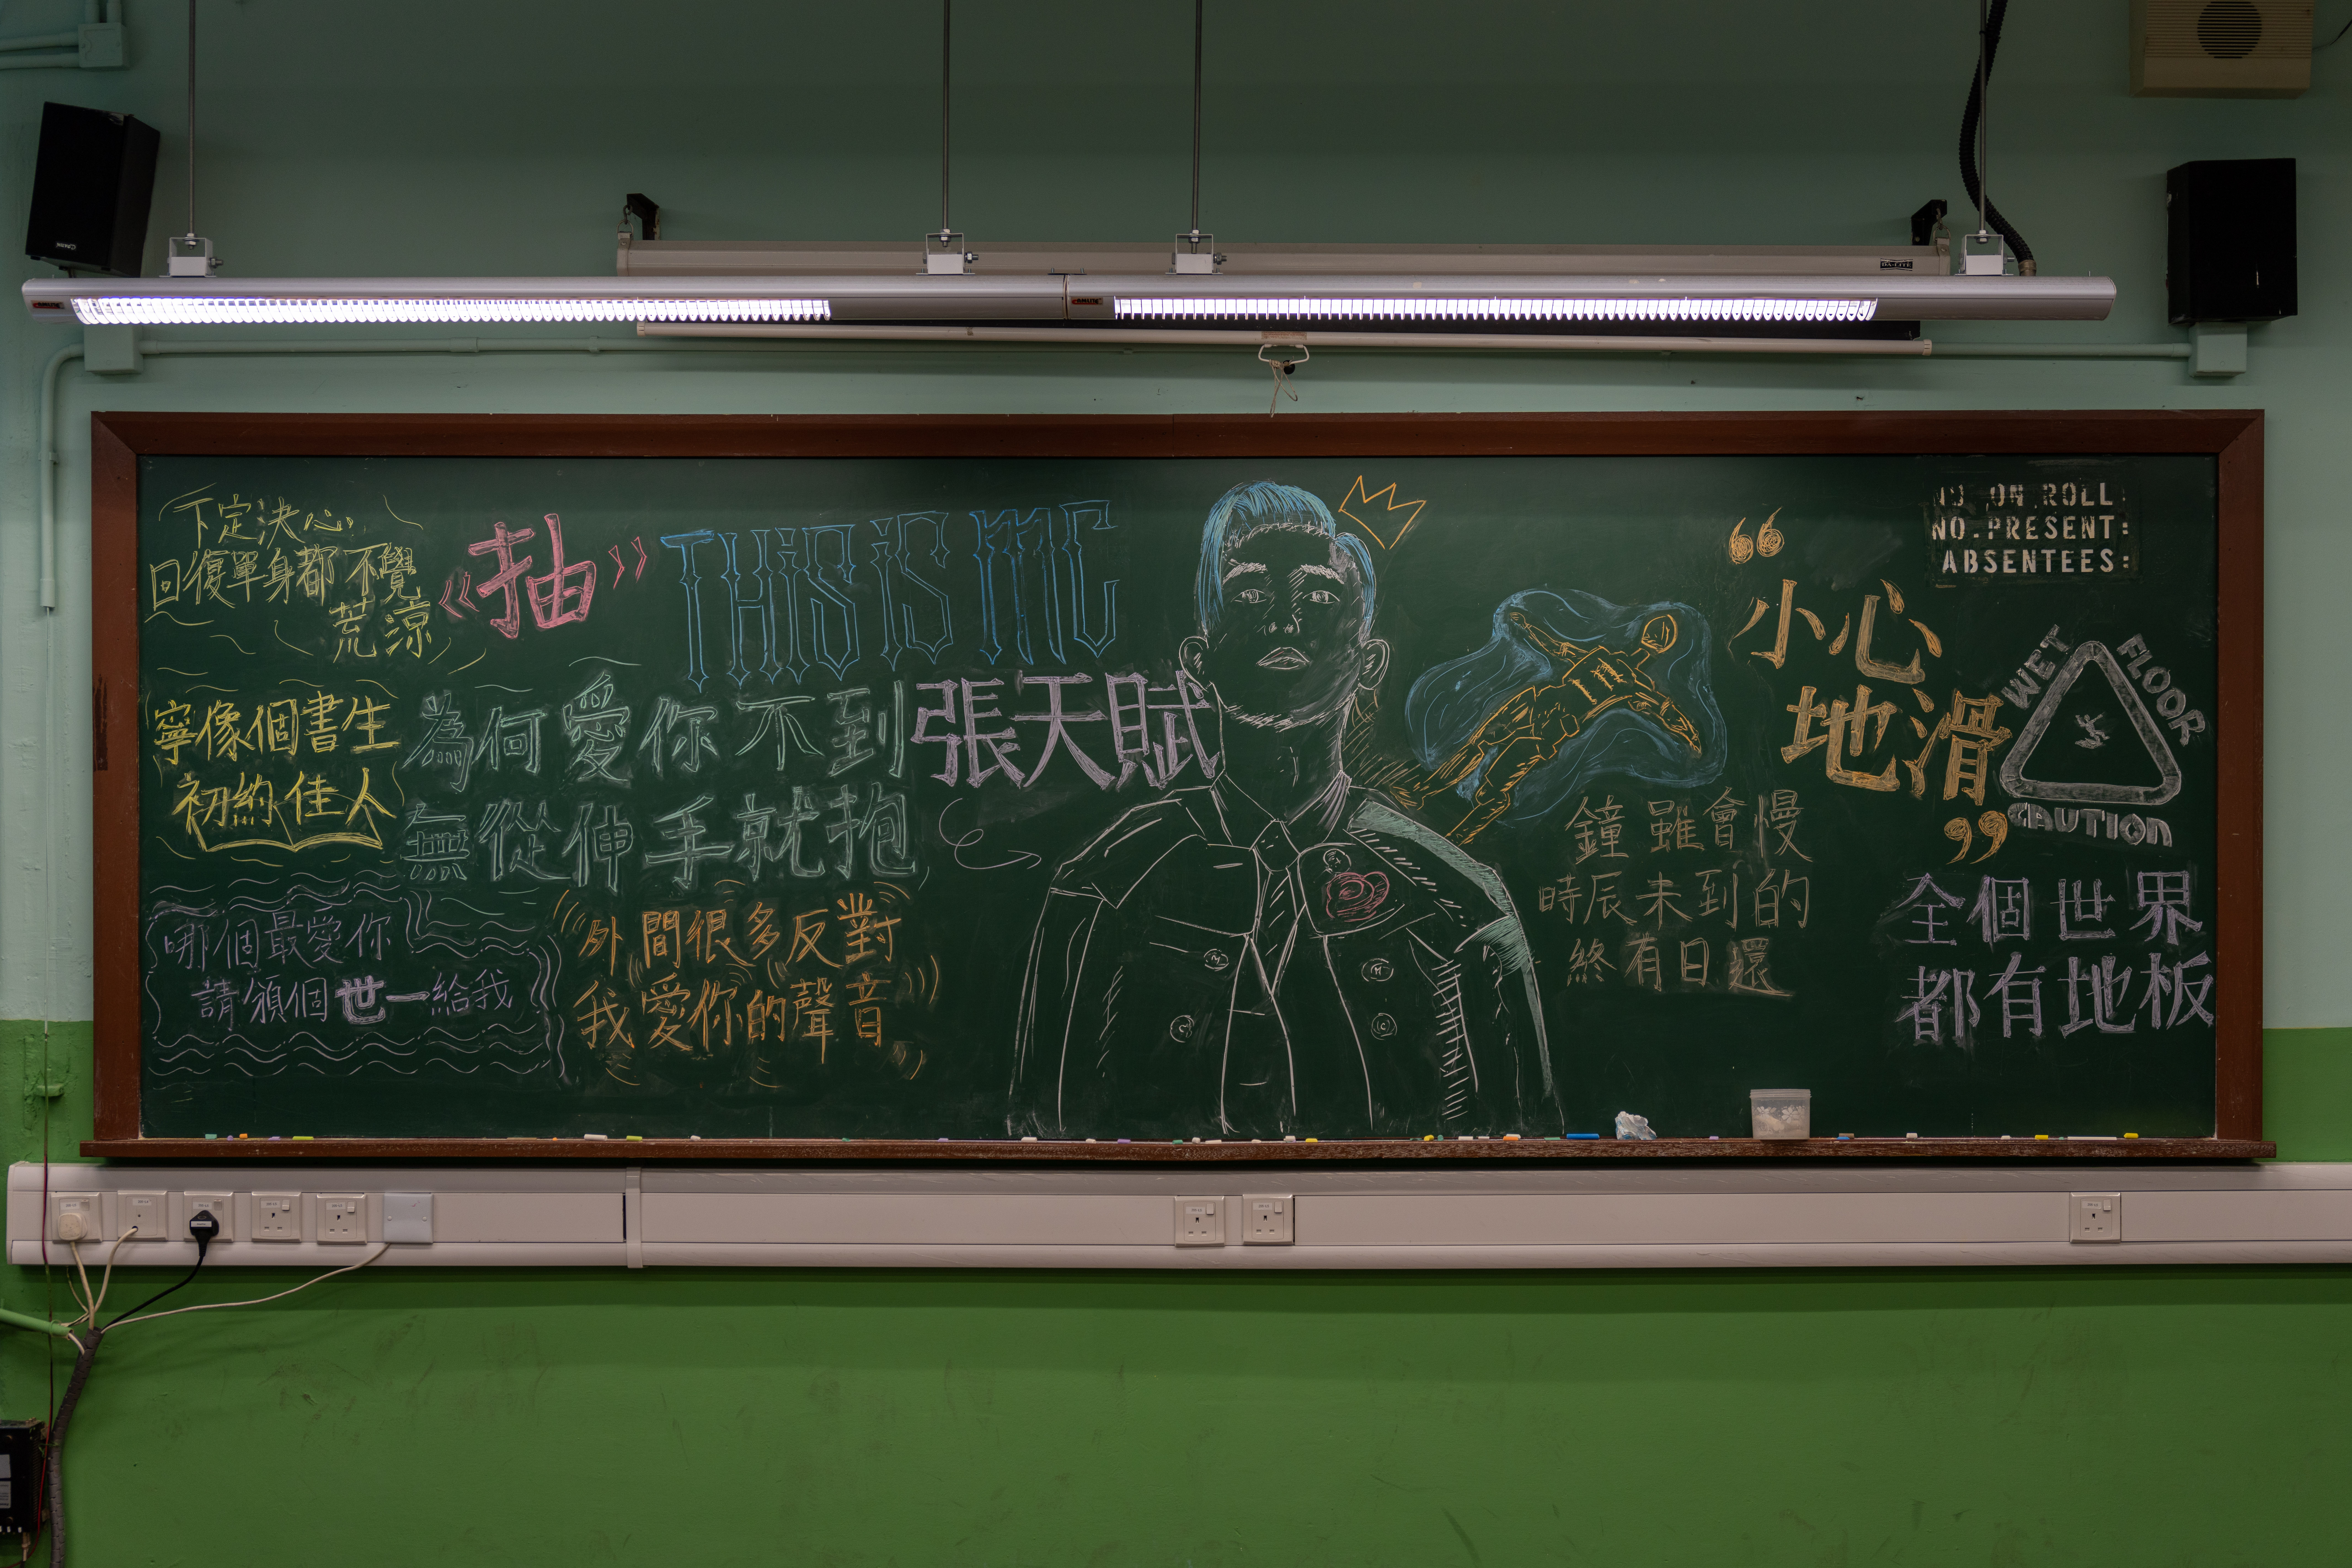 下定決心
回復單身都不覺
荒涼
《抽》
THIS IS MC
張天賦
寧像個書生
初約佳人
為何愛你不到
無從伸手就抱
哪個最愛你
請頒個世一給我
外間很多反對
我愛你的聲音
“小心
地滑”
WET FLOOR
CAUTION
鐘雖會慢
時辰未到的
終有日還
全個世界
都有地板
NO. ON ROLL:
NO. PRESENT:
ABSENTEES: